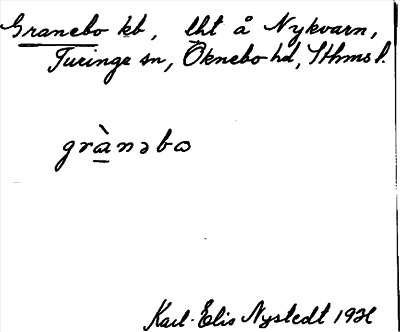 Granebo kb, lht å Nykvarn,
Turinge sn, Öknebo hd, Sthms l.
grànəbω
Karl-Elis Nystedt